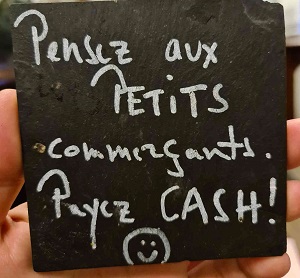 Pensez aux
PETITS
commerçants.
Payez CASH!